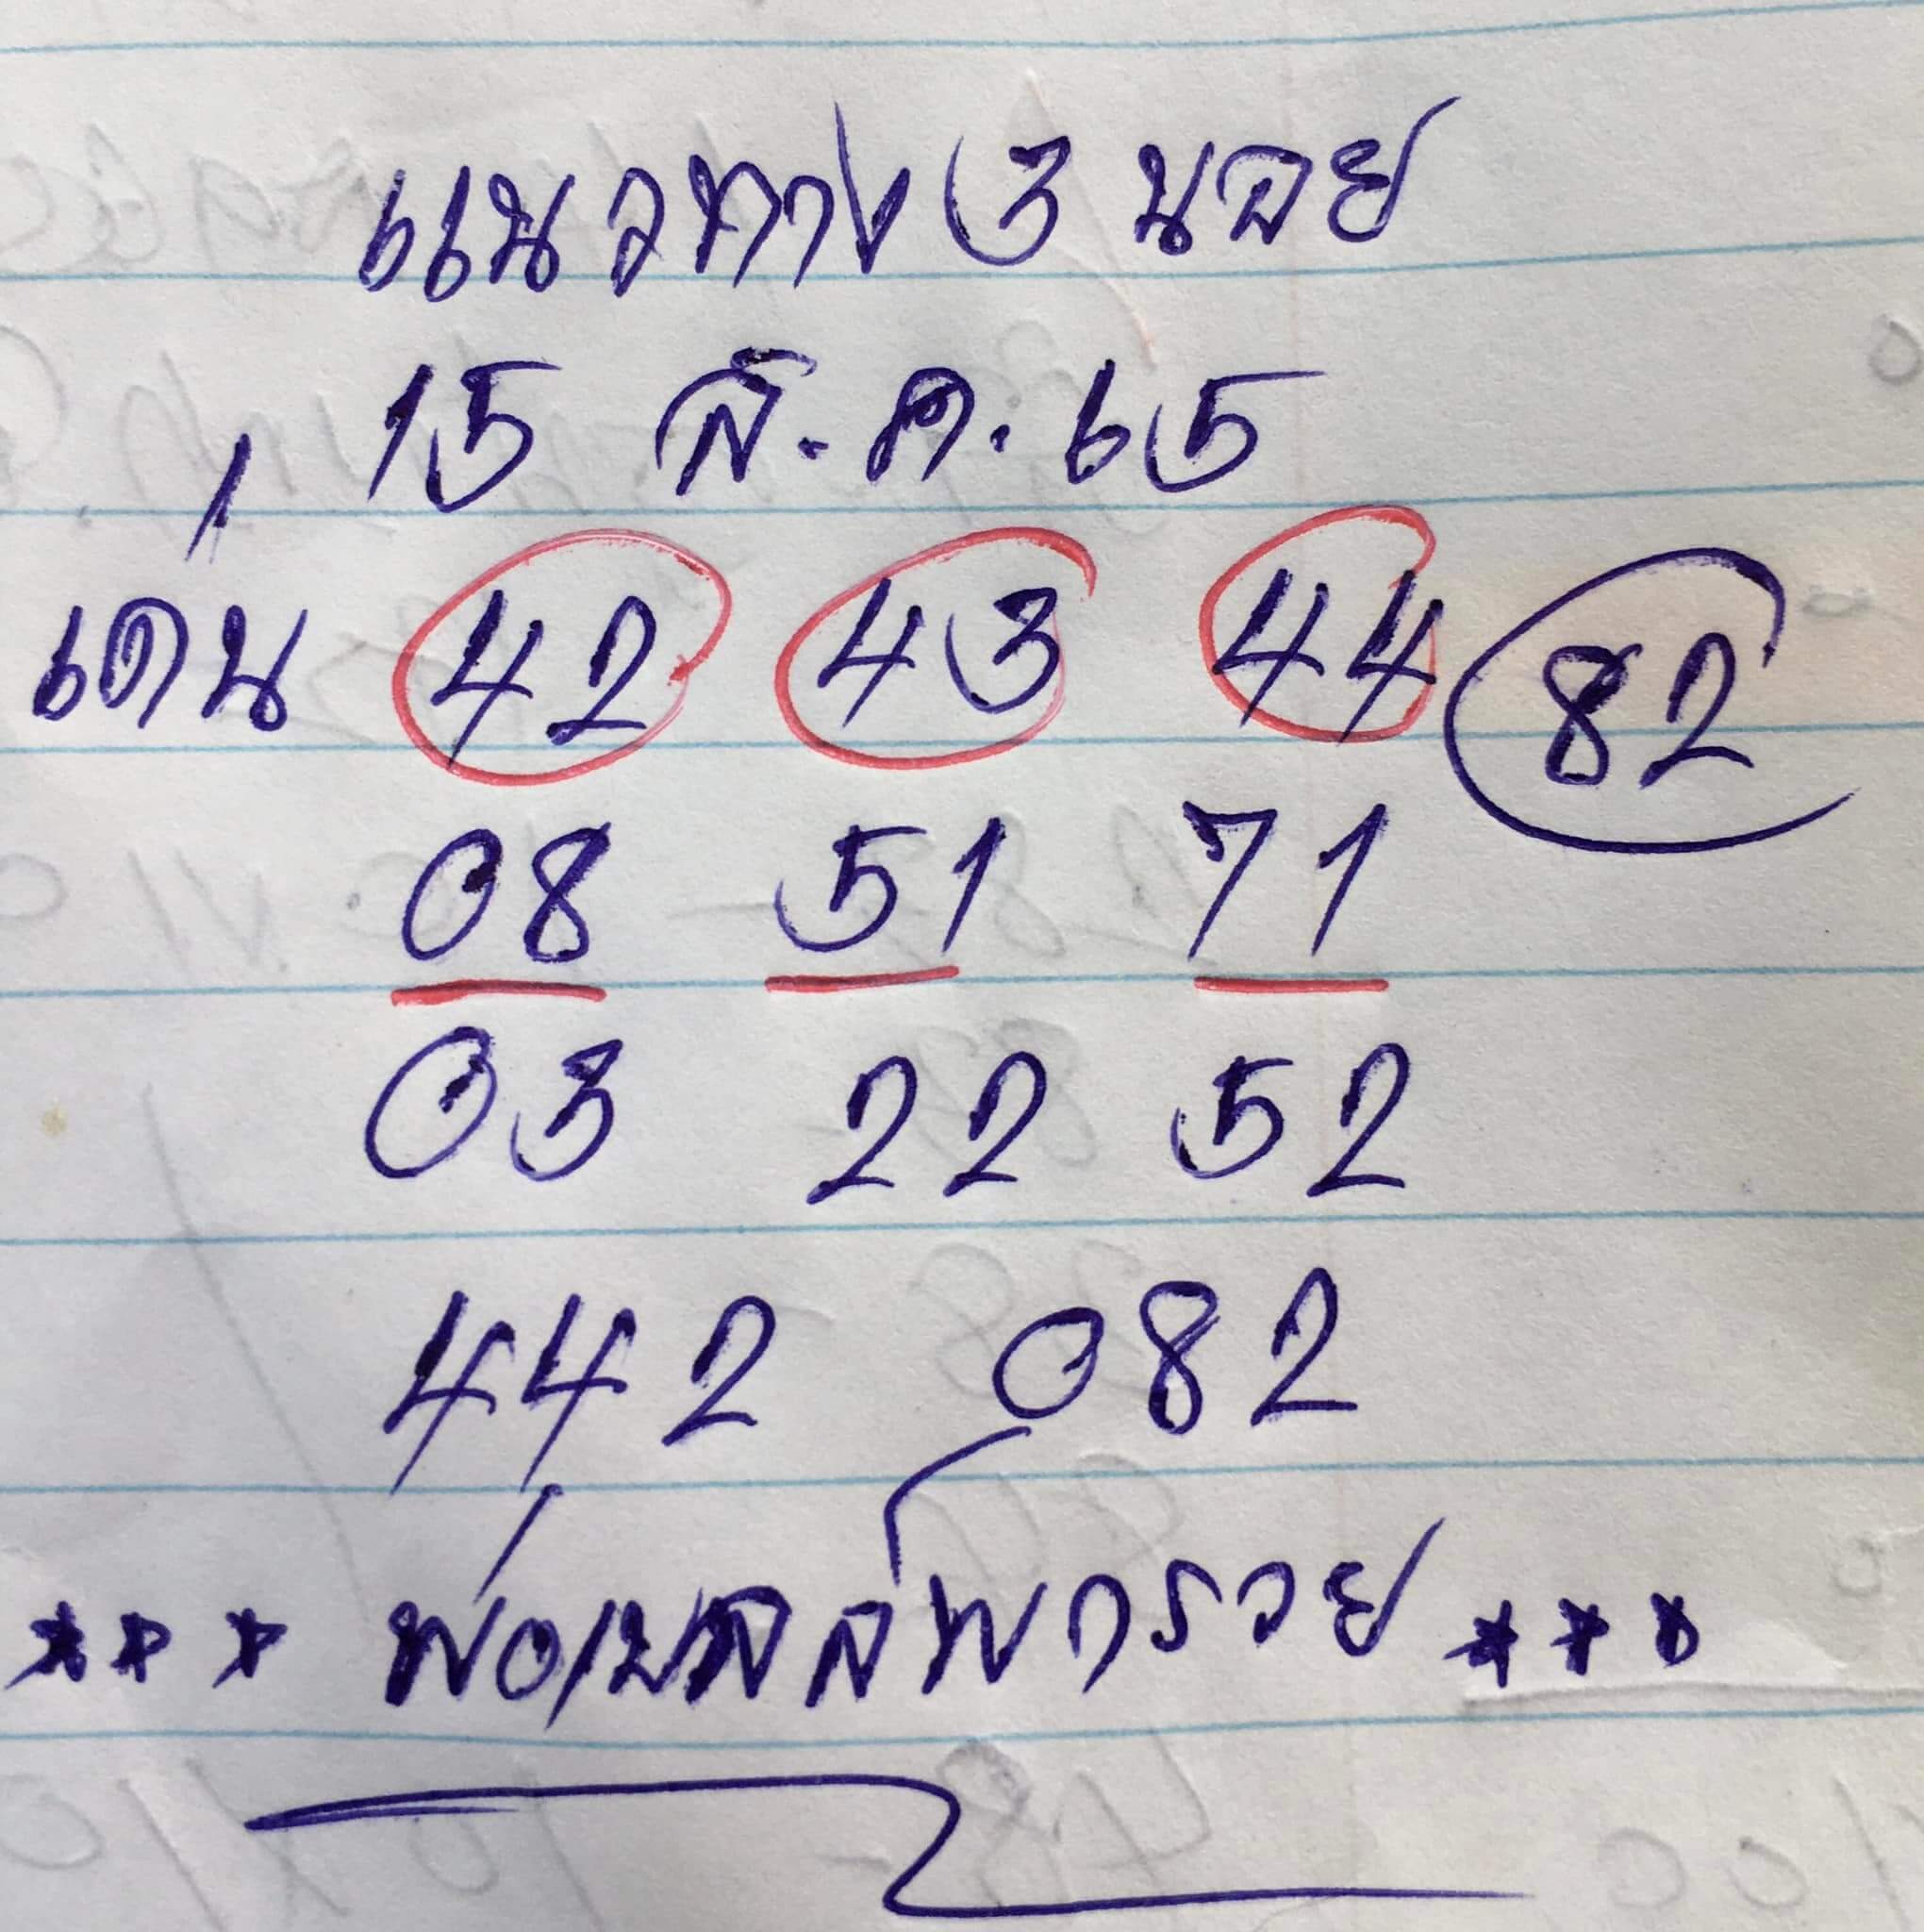 แนวทาง 3 นอย
15 ส.ค. 65
เด่น 42 43 44 82
08 51 71
03 22 52
442 082
*** พารวย ***